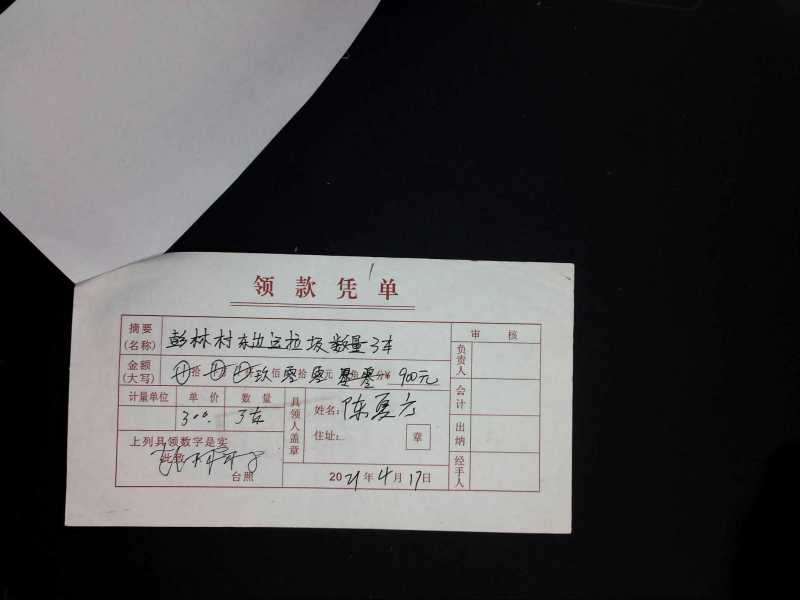 领款凭单
摘要(名称) 彭林村东边运垃圾数量3车
审核
金额(大写) 拾 玖佰零拾零元零角零分¥900元
负责人
计量单位 单价 数量
300. 3车
具领人盖章
姓名:陈夏
住址:
章
会计
出纳
上列具领数字是实
此致
台照
2021年4月17日
经手人